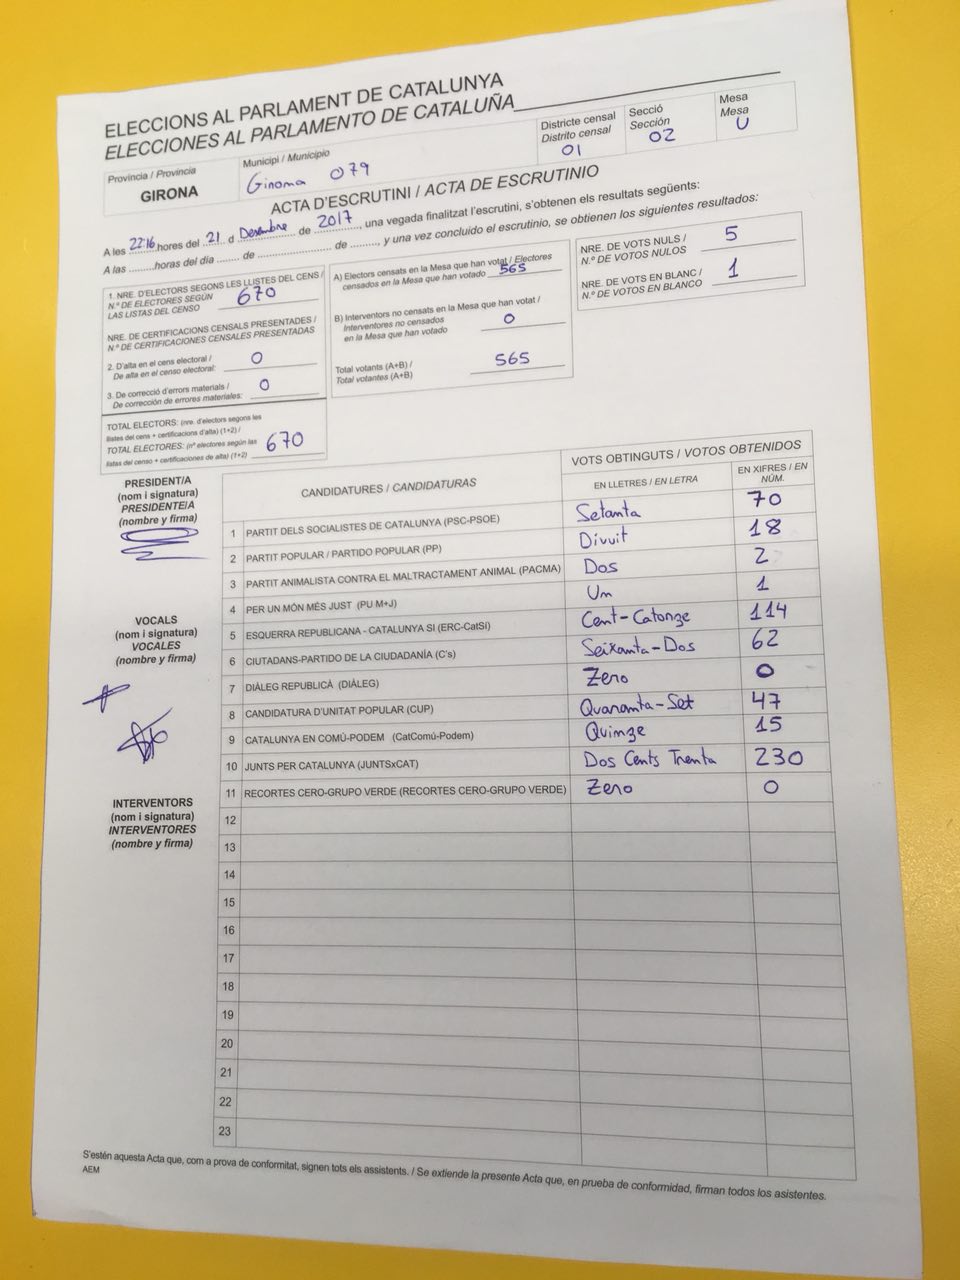 ELECCIONS AL PARLAMENT DE CATALUNYA
ELECCIONES AL PARLAMENTO DE CATALUÑA
Província / Provincia
GIRONA
Municipi / Municipio
Girona 079
Districte censal
Distrito censal
01
Secció
Sección
02
Mesa
Mesa
U
ACTA D'ESCRUTINI / ACTA DE ESCRUTINIO
A les 22:16 hores del 21 d Desembre de 2017, una vegada finalitzat l'escrutini, s'obtenen els resultats següents:
A las ........ horas del día ........ de ........................ de ........, y una vez concluido el escrutinio, se obtienen los siguientes resultados:
1. NRE. D'ELECTORS SEGONS LES LLISTES DEL CENS /
N.º DE ELECTORES SEGÚN
LAS LISTAS DEL CENSO
670
NRE. DE CERTIFICACIONS CENSALS PRESENTADES /
N.º DE CERTIFICACIONES CENSALES PRESENTADAS
2. D'alta en el cens electoral /
De alta en el censo electoral:
0
3. De correcció d'errors materials /
De corrección de errores materiales:
0
TOTAL ELECTORS: (nre. d'electors segons les
llistes del cens + certificacions d'alta) (1+2) /
TOTAL ELECTORES: (nº electores según las
listas del censo + certificaciones de alta) (1+2)
670
A) Electors censats en la Mesa que han votat / Electores
censados en la Mesa que han votado
565
B) Interventors no censats en la Mesa que han votat /
Interventores no censados
en la Mesa que han votado
0
Total votants (A+B) /
Total votantes (A+B)
565
NRE. DE VOTS NULS /
N.º DE VOTOS NULOS
5
NRE. DE VOTS EN BLANC /
N.º DE VOTOS EN BLANCO
1
PRESIDENT/A
(nom i signatura)
PRESIDENTE/A
(nombre y firma)
VOCALS
(nom i signatura)
VOCALES
(nombre y firma)
INTERVENTORS
(nom i signatura)
INTERVENTORES
(nombre y firma)
CANDIDATURES / CANDIDATURAS
VOTS OBTINGUTS / VOTOS OBTENIDOS
EN LLETRES / EN LETRA
EN XIFRES / EN
NÚM.
1 PARTIT DELS SOCIALISTES DE CATALUNYA (PSC-PSOE) Setanta 70
2 PARTIT POPULAR / PARTIDO POPULAR (PP) Divuit 18
3 PARTIT ANIMALISTA CONTRA EL MALTRACTAMENT ANIMAL (PACMA) Dos 2
4 PER UN MÓN MÉS JUST (PU M+J) Un 1
5 ESQUERRA REPUBLICANA - CATALUNYA SI (ERC-CatSi) Cent-Catorze 114
6 CIUTADANS-PARTIDO DE LA CIUDADANÍA (C's) Seixanta-Dos 62
7 DIÀLEG REPUBLICÀ (DIÀLEG) Zero 0
8 CANDIDATURA D'UNITAT POPULAR (CUP) Quaranta-Set 47
9 CATALUNYA EN COMÚ-PODEM (CatComú-Podem) Quinze 15
10 JUNTS PER CATALUNYA (JUNTSxCAT) Dos Cents Trenta 230
11 RECORTES CERO-GRUPO VERDE (RECORTES CERO-GRUPO VERDE) Zero 0
12
13
14
15
16
17
18
19
20
21
22
23
S'estén aquesta Acta que, com a prova de conformitat, signen tots els assistents. / Se extiende la presente Acta que, en prueba de conformidad, firman todos los asistentes.
AEM